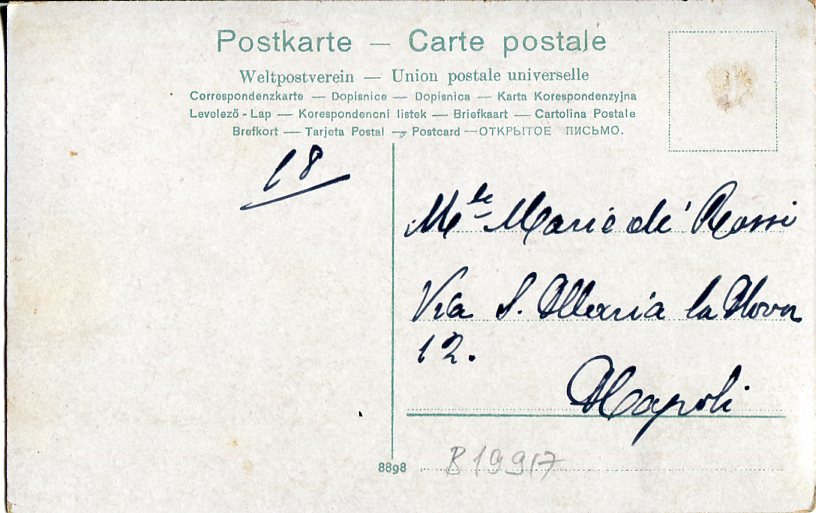 Postkarte — Carte postale
Weltpostverein — Union postale universelle
Correspondenzkarte — Dopisnice — Dopisnica — Karta Korespondenzyjna
Levelező-Lap — Korespondencni listek — Briefkaart — Cartolina Postale
Brefkort — Tarjeta Postal — Postcard — ОТКРЫТОЕ ПИСЬМО.
18
Mlle Marie de' Rossi
Via S. Maria la Nova
12.
Napoli
8898
B19917